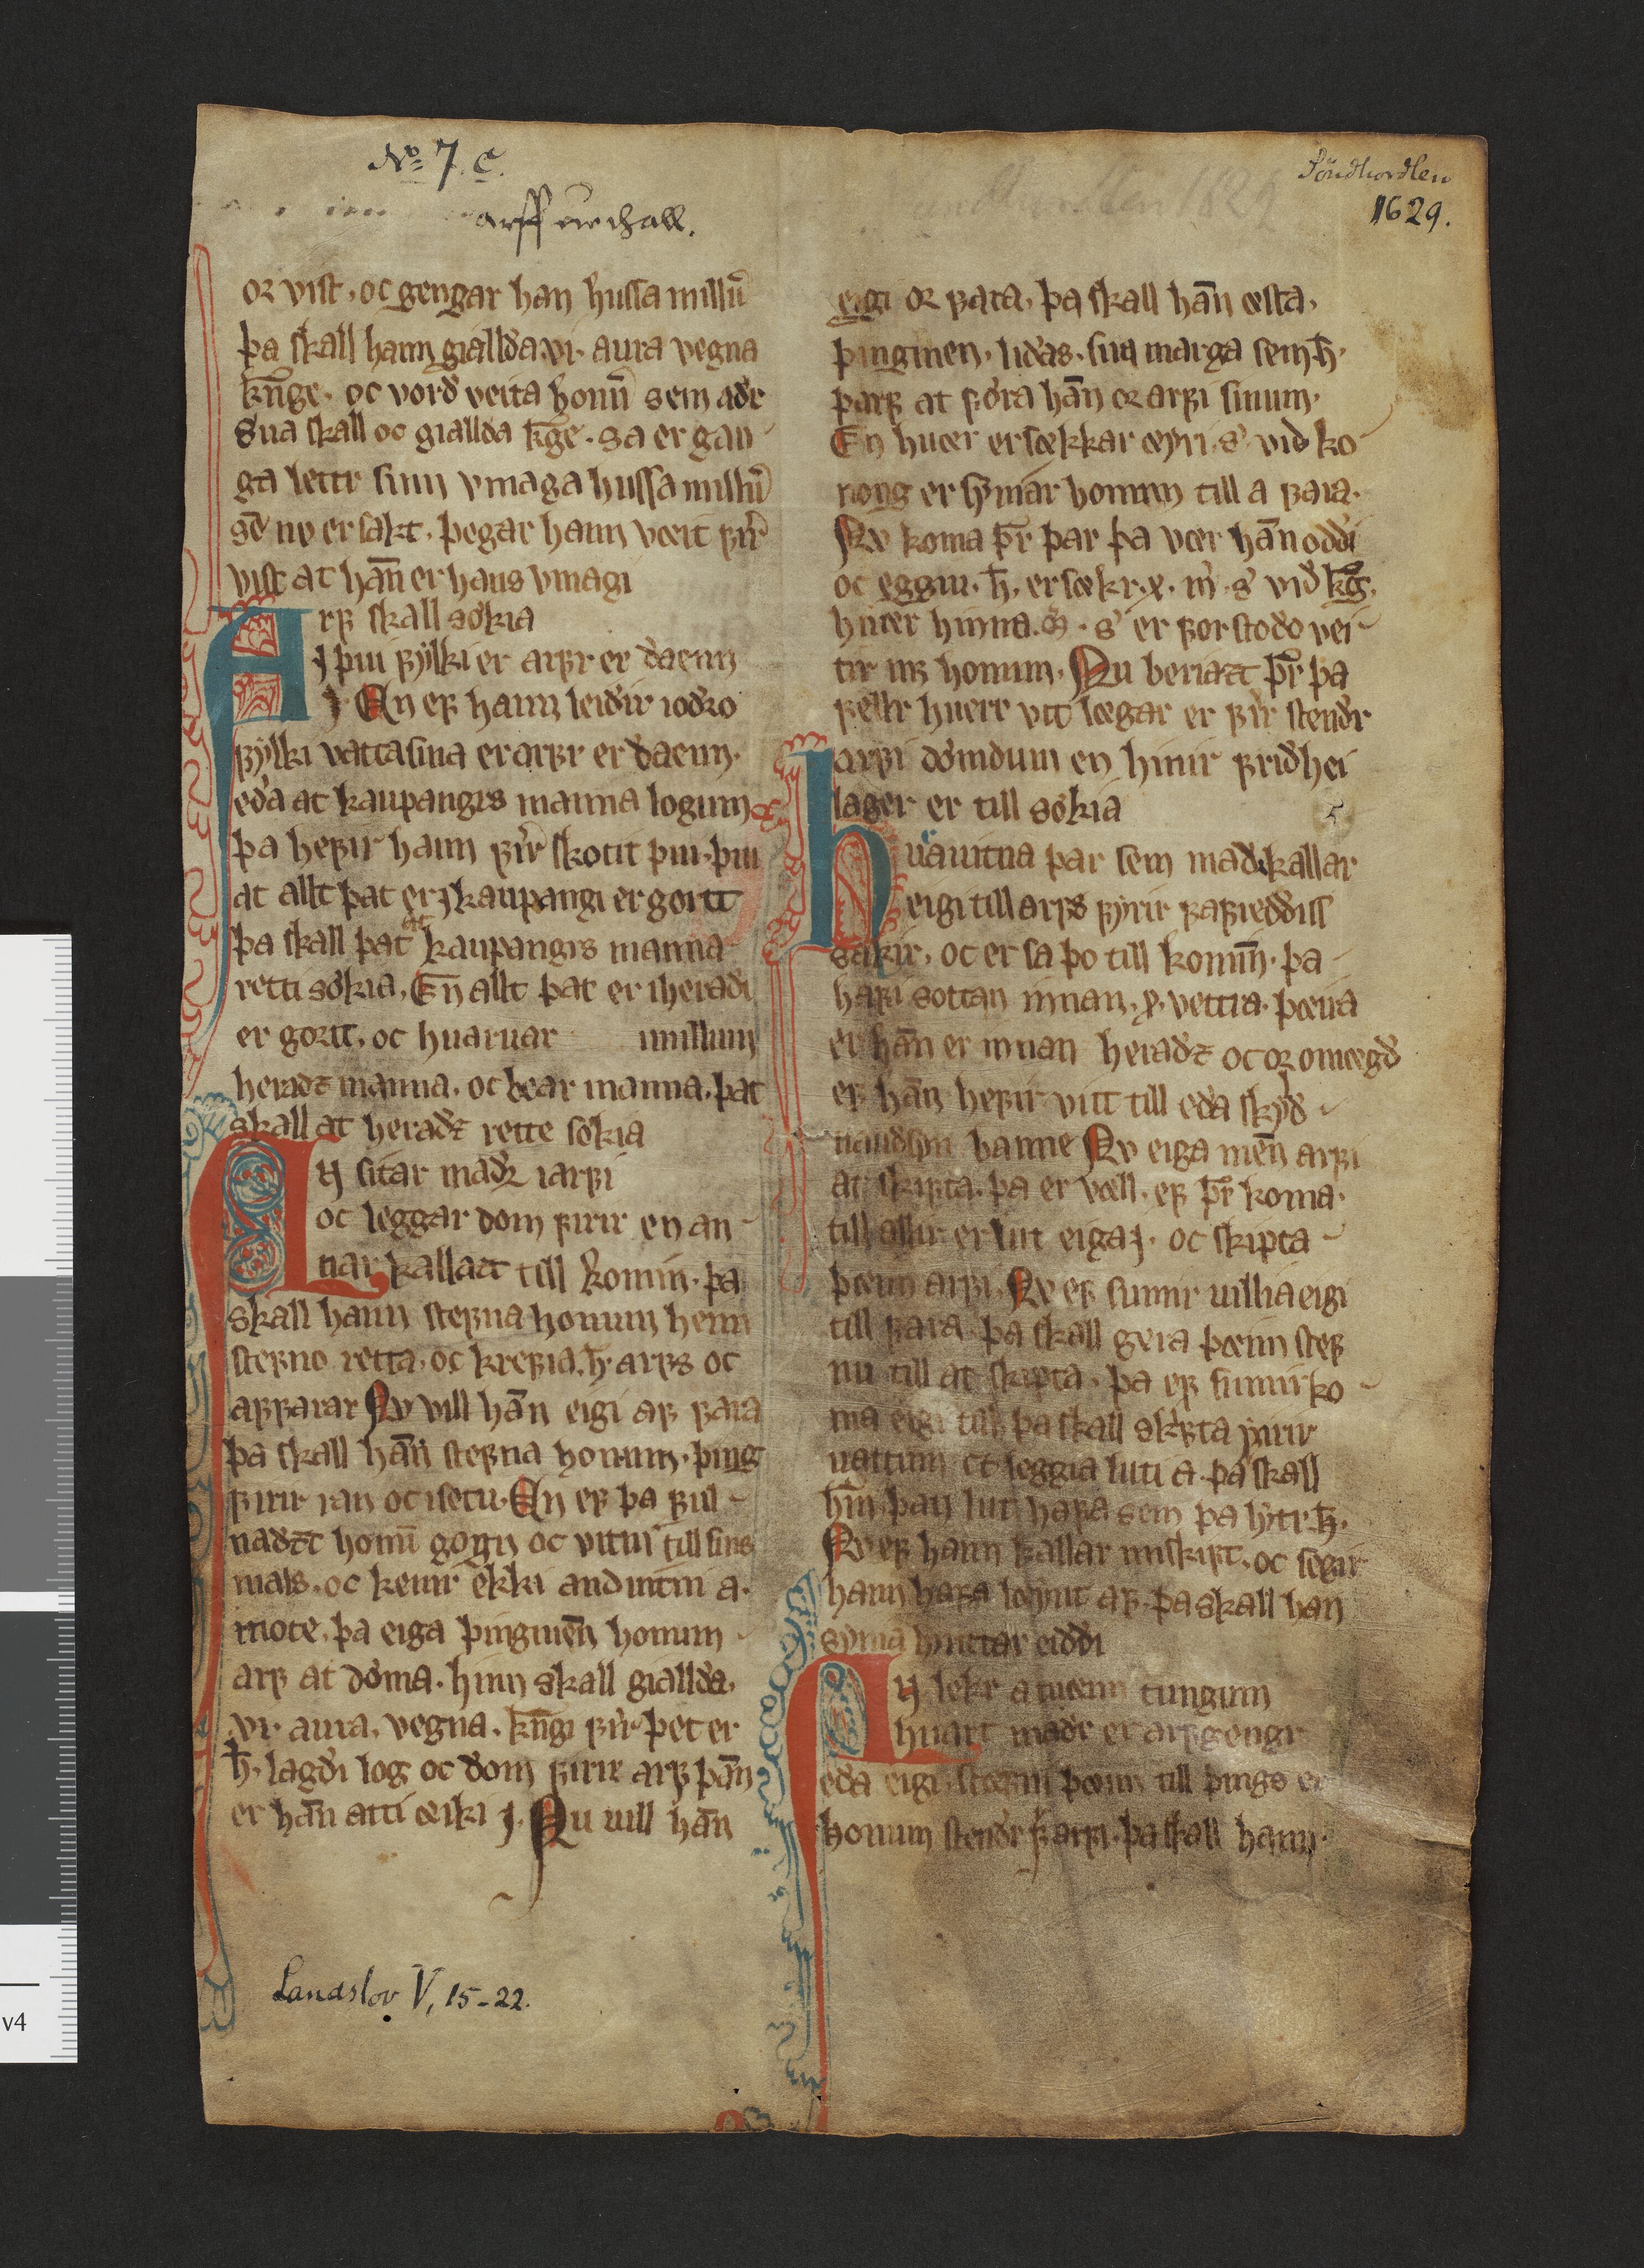 No 7. c.
arff
Söndhordlen
1629.
or vist, oc gengar han hussa millū
þa skall hann giallda. vi. aura vegna
kn̄ge. oc vord veita honū sem adr
Sua skall oc giallda kḡe. sa er gan-
ga lettr sinn vmaga hussa millū
sē nv er sakt. þegar hann veit ꝼir̄
vist at hān er hans vmagi
Arꝼ skall sökia
J þui ꝼylki er arꝼr er daenn
J. En eꝼ hann leidir iodro
ꝼylki vatta sina er arꝼr er daenn.
eda at kaupangrs manna logum
þa heꝼir hann ꝼir̄ skotit þui. þui
at allt þat er J kaupangi er gortt
þa skall þat at kaupangrs manna
retti sökia. En̄ allt þat er iheradi
er gortt, oc huaruar millum
heradz manna. oc bear manna. þat
skall at heradz rette sökia
En sitar madr iarꝼi
oc leggar dom ꝼirir en an-
nar kallazt till komin. þa
skall hann steꝼna honum heim
steꝼno retta, oc kreꝼia. h̄. arꝼs oc
aꝼꝼarar Nv vill hān eigi aꝼ ꝼara
þa skall hān steꝼna honum. þing
ꝼirir ran oc setu. En eꝼ þa ꝼul-
nadzt honū gogn oc vitni till sins
mals, oc kemr ekki anduitni a.
mote, þa eiga þingmēn honum
arꝼ at döma. hinn skall giallda.
vi. aura, vegna. kn̄gi ꝼir̄ þet er
h̄. lagdi log oc dom ꝼirir arꝼ þān
er hān atti eiki J. Nu uill hān
eigi or ꝼata, þa skall hān œsta,
þingmen. lidas. sua marga sem h̄.
þarꝼ at ꝼöra hān or arꝼi sinum.
En huer er sœkkar œyri. s̓ vid ko-
nong er syniar honum till a ꝼara.
Nv koma þr̄ þar þa ver hān oddi
oc eggiu. h̄. er sœkr. x. m̓. s̓ vid kḡ.
huer hinna. s̓ er ꝼor stodo vei-
tir honum. Nu beriazt þr̄ þa
ꝼellr huerr vtt lœgar er ꝼir̄ stendr
arꝼi dömdum en hinir ꝼridhei
lager er till sökia
Huauitna þar sem madr kallar
eigi till arꝼs ꝼyrir ꝼaꝼreddiss
sakir, oc er sa þo till komīn. þa
haꝼi sottan innan. x. vettra. þœira
er hān er innan heradz oc or omœgd
eꝼ hān heꝼir vitt till eda skyld
naudsyn banne Nv eiga mēn arꝼi
at skipta. þa er vœll. eꝼ þr̄ koma.
till allir er lut eiga J. oc skipta
þœim arꝼi. Nv eꝼ sumir uillia eigi
till ꝼara þa skall gera þœim steꝼ
nu till at skipta, þa eꝼ sumir ko-
ma eigi till þa skall skipta ꝼirir
uattum oc leggia luti a. þa skall
hin þan lut haꝼa sem þa hytr. h̄.
Nv eꝼ hann kallar miskipt. oc segir
hann haꝼa loynt aꝼ. þa skall han
synia lyrittar eiddi
En lekr a tueim tungum
huart madr er arꝼgengr
eda eigi. steꝼni þœim till þings er
honum stendr ꝼ arꝼi. þa skall hann.
Landslov V, 15-22.